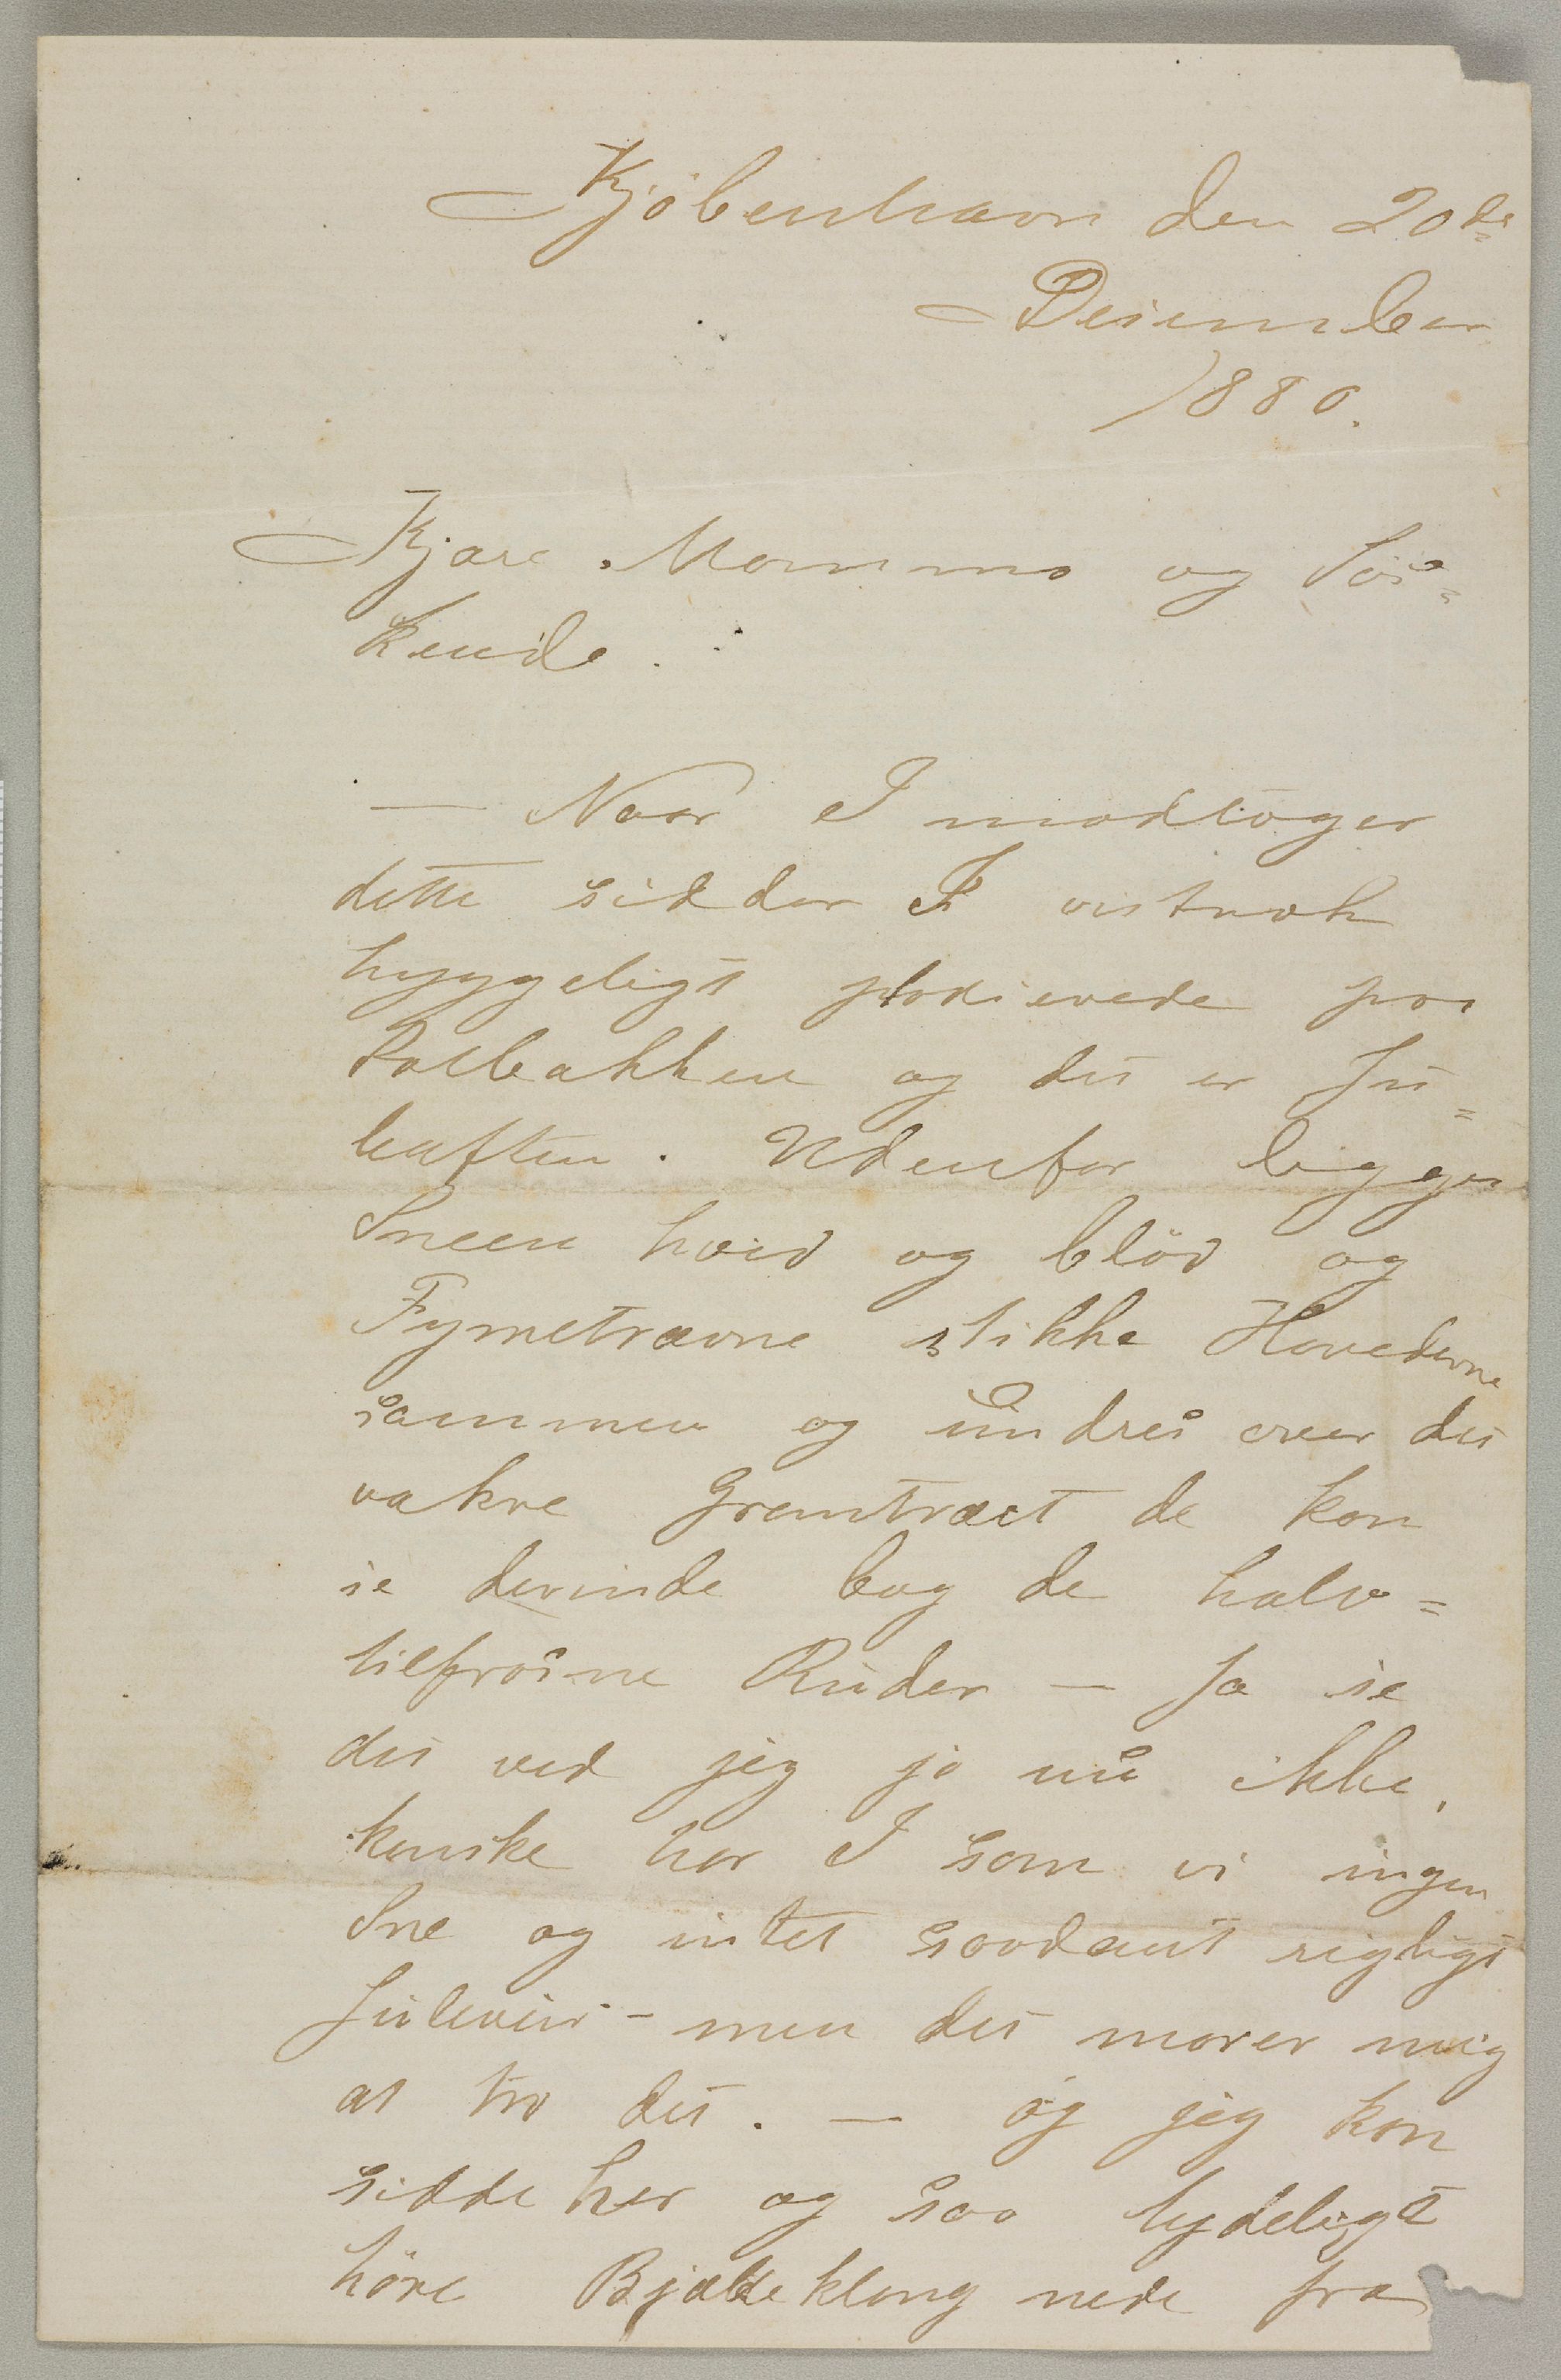 Kjöbenhavn den 20de
December
1880.
Kjære Mamma og Søs=
kende.
— Naar I modtager
dette sidder I vistnok
hyggeligt placierede paa
Solbakken og det er Ju=
leaften. Udenfor ligger
Sneen hvid og blöd og
Fyrretræerne stikke Hovederne
sammen og undres over det
vakre Grantræet de kan
se derinde bag de halv=
tilfrosne Ruder — Ja se
det ved jeg jo nu ikke,
kanske har I som vi ingen
Sne og intet saadant rigtigt
Juleveir - men det morer mig
at tro det. — og jeg kan
sidde her og saa tydeligt
höre Bjældeklang nede fra